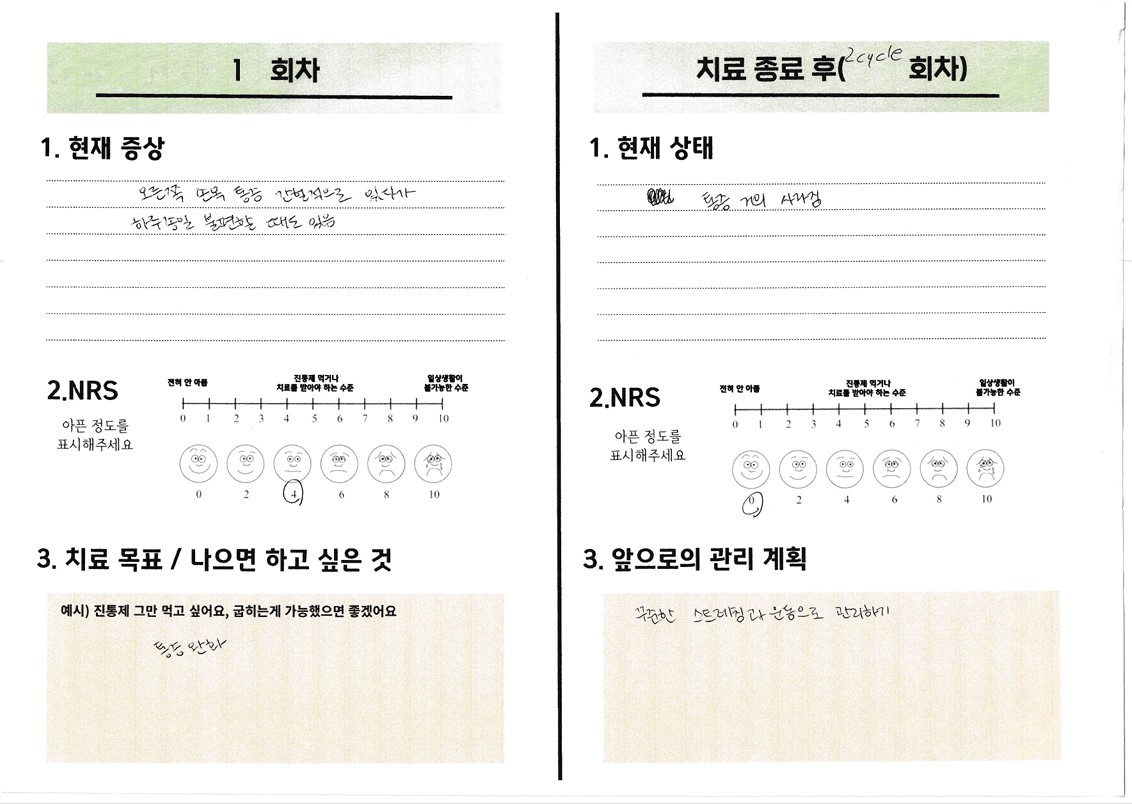 1 회차
1. 현재 증상
오른쪽 손목 통증 간헐적으로 있다가
하루종일 불편할 때도 있음
2.NRS
아픈 정도를
표시해주세요
전혀 안 아픔
진통제 먹거나
치료를 받아야 하는 수준
일상생활이
불가능한 수준
0 1 2 3 4 5 6 7 8 9 10
0 2 4 6 8 10
3. 치료 목표 / 나으면 하고 싶은 것
예시) 진통제 그만 먹고 싶어요, 굽히는게 가능했으면 좋겠어요
통증 완화
치료 종료 후(2cycle 회차)
1. 현재 상태
통증 거의 사라짐
2.NRS
아픈 정도를
표시해주세요
전혀 안 아픔
진통제 먹거나
치료를 받아야 하는 수준
일상생활이
불가능한 수준
0 1 2 3 4 5 6 7 8 9 10
0 2 4 6 8 10
3. 앞으로의 관리 계획
꾸준한 스트레칭과 운동으로 관리하기